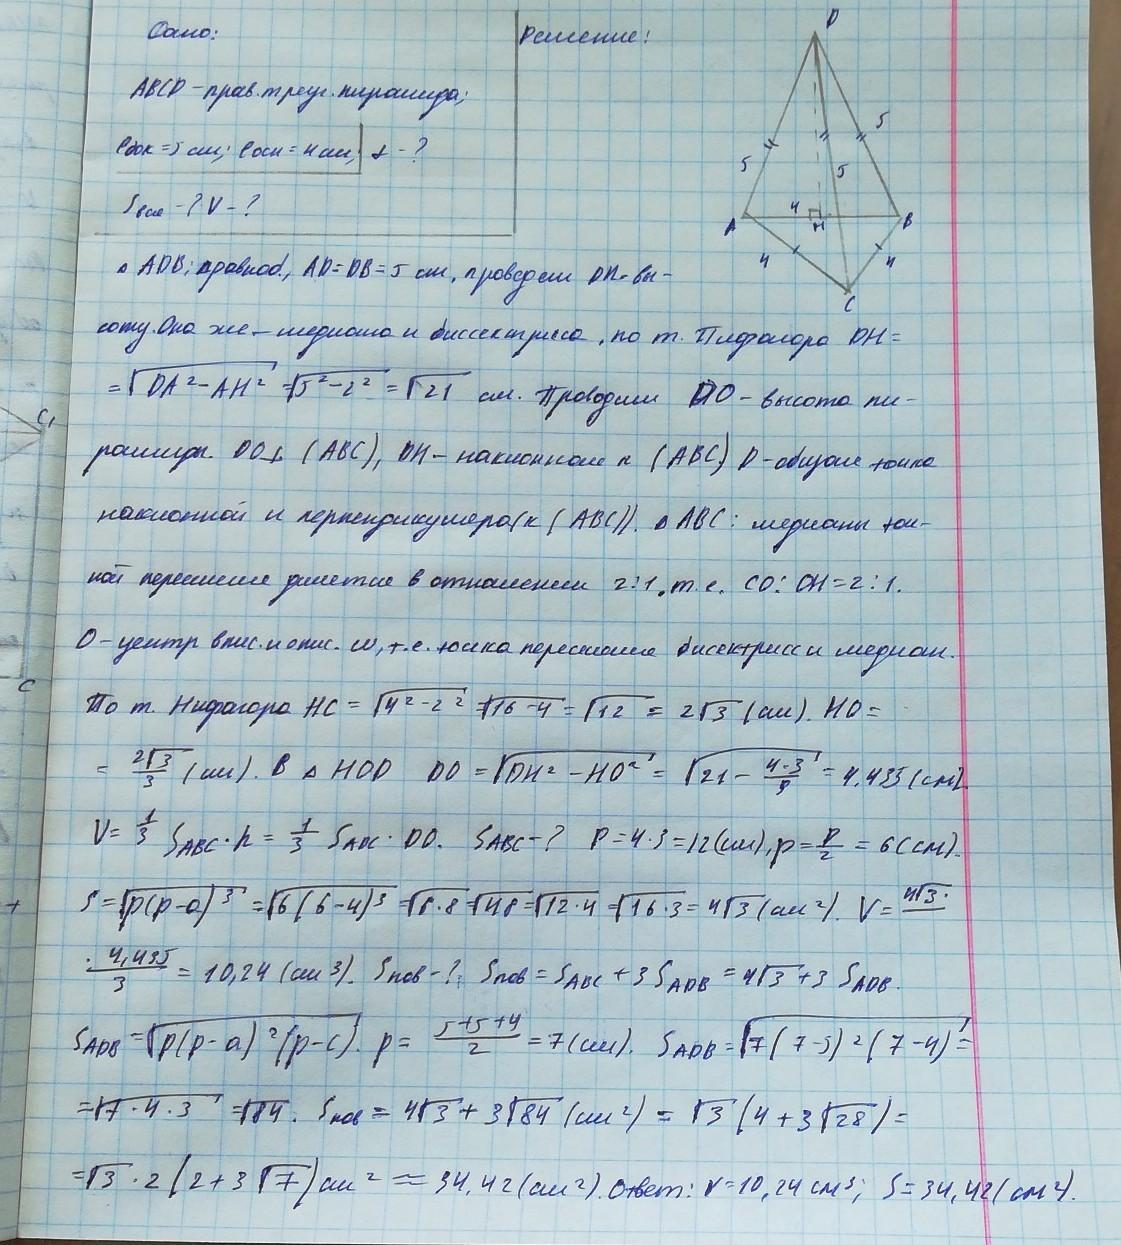 Дано:
Решение!
ABCD - прав. треуг. пирамида;
ℓбок = 5 см; ℓосн = 4 см;
Sпов - ? V - ?
D
5
5
5
A
4
H
B
4
4
C
Δ ADB; равноб., AD = DB = 5 см, проведем DH - вы-
соту. Она же - медиана и биссектриса, по т. Пифагора DH =
= √(DA² - AH²) = √(5² - 2²) = √21 см. Проводим DO - высота пи-
рамиды. DO ⊥ (ABC), DH - наклонная к (ABC) D - общая точка
наклонной и перпендикуляра (к (ABC)). Δ ABC: медианы точ-
кой пересечения делятся в отношении 2:1, т. е. CO : OH = 2 : 1.
O - центр впис. и опис. ω, т. е. точка пересечения бисектрисс и медиан.
По т. Пифагора HC = √(4² - 2²) = √(16 - 4) = √12 = 2√3 (см). HO =
= 2√3/3 (см). В Δ HOD DO = √(DH² - HO²) = √(21 - 4·3/9) = 4,435 (см).
V = 1/3 S_ABC · h = 1/3 S_ABC · DO. S_ABC - ? P = 4 · 3 = 12 (см), p = P/2 = 6 (см).
S = √(p(p-a)³) = √(6(6-4)³) = √(6·8) = √48 = √(12·4) = √(16·3) = 4√3 (см²). V = 4√3 ·
· 4,435/3 = 10,24 (см³). Sпов - ? Sпов = S_ABC + 3S_ADB = 4√3 + 3 S_ADB.
S_ADB = √(p(p-a)²(p-c)). p = (5+5+4)/2 = 7 (см). S_ADB = √(7(7-5)²(7-4)) =
= √(7·4·3) = √84. Sпов = 4√3 + 3√84 (см²) = √3 (4 + 3√28) =
= √3 · 2 (2 + 3√7) см² ≈ 34,42 (см²). Ответ: V = 10,24 см³; S = 34,42 (см²).
C₁
C